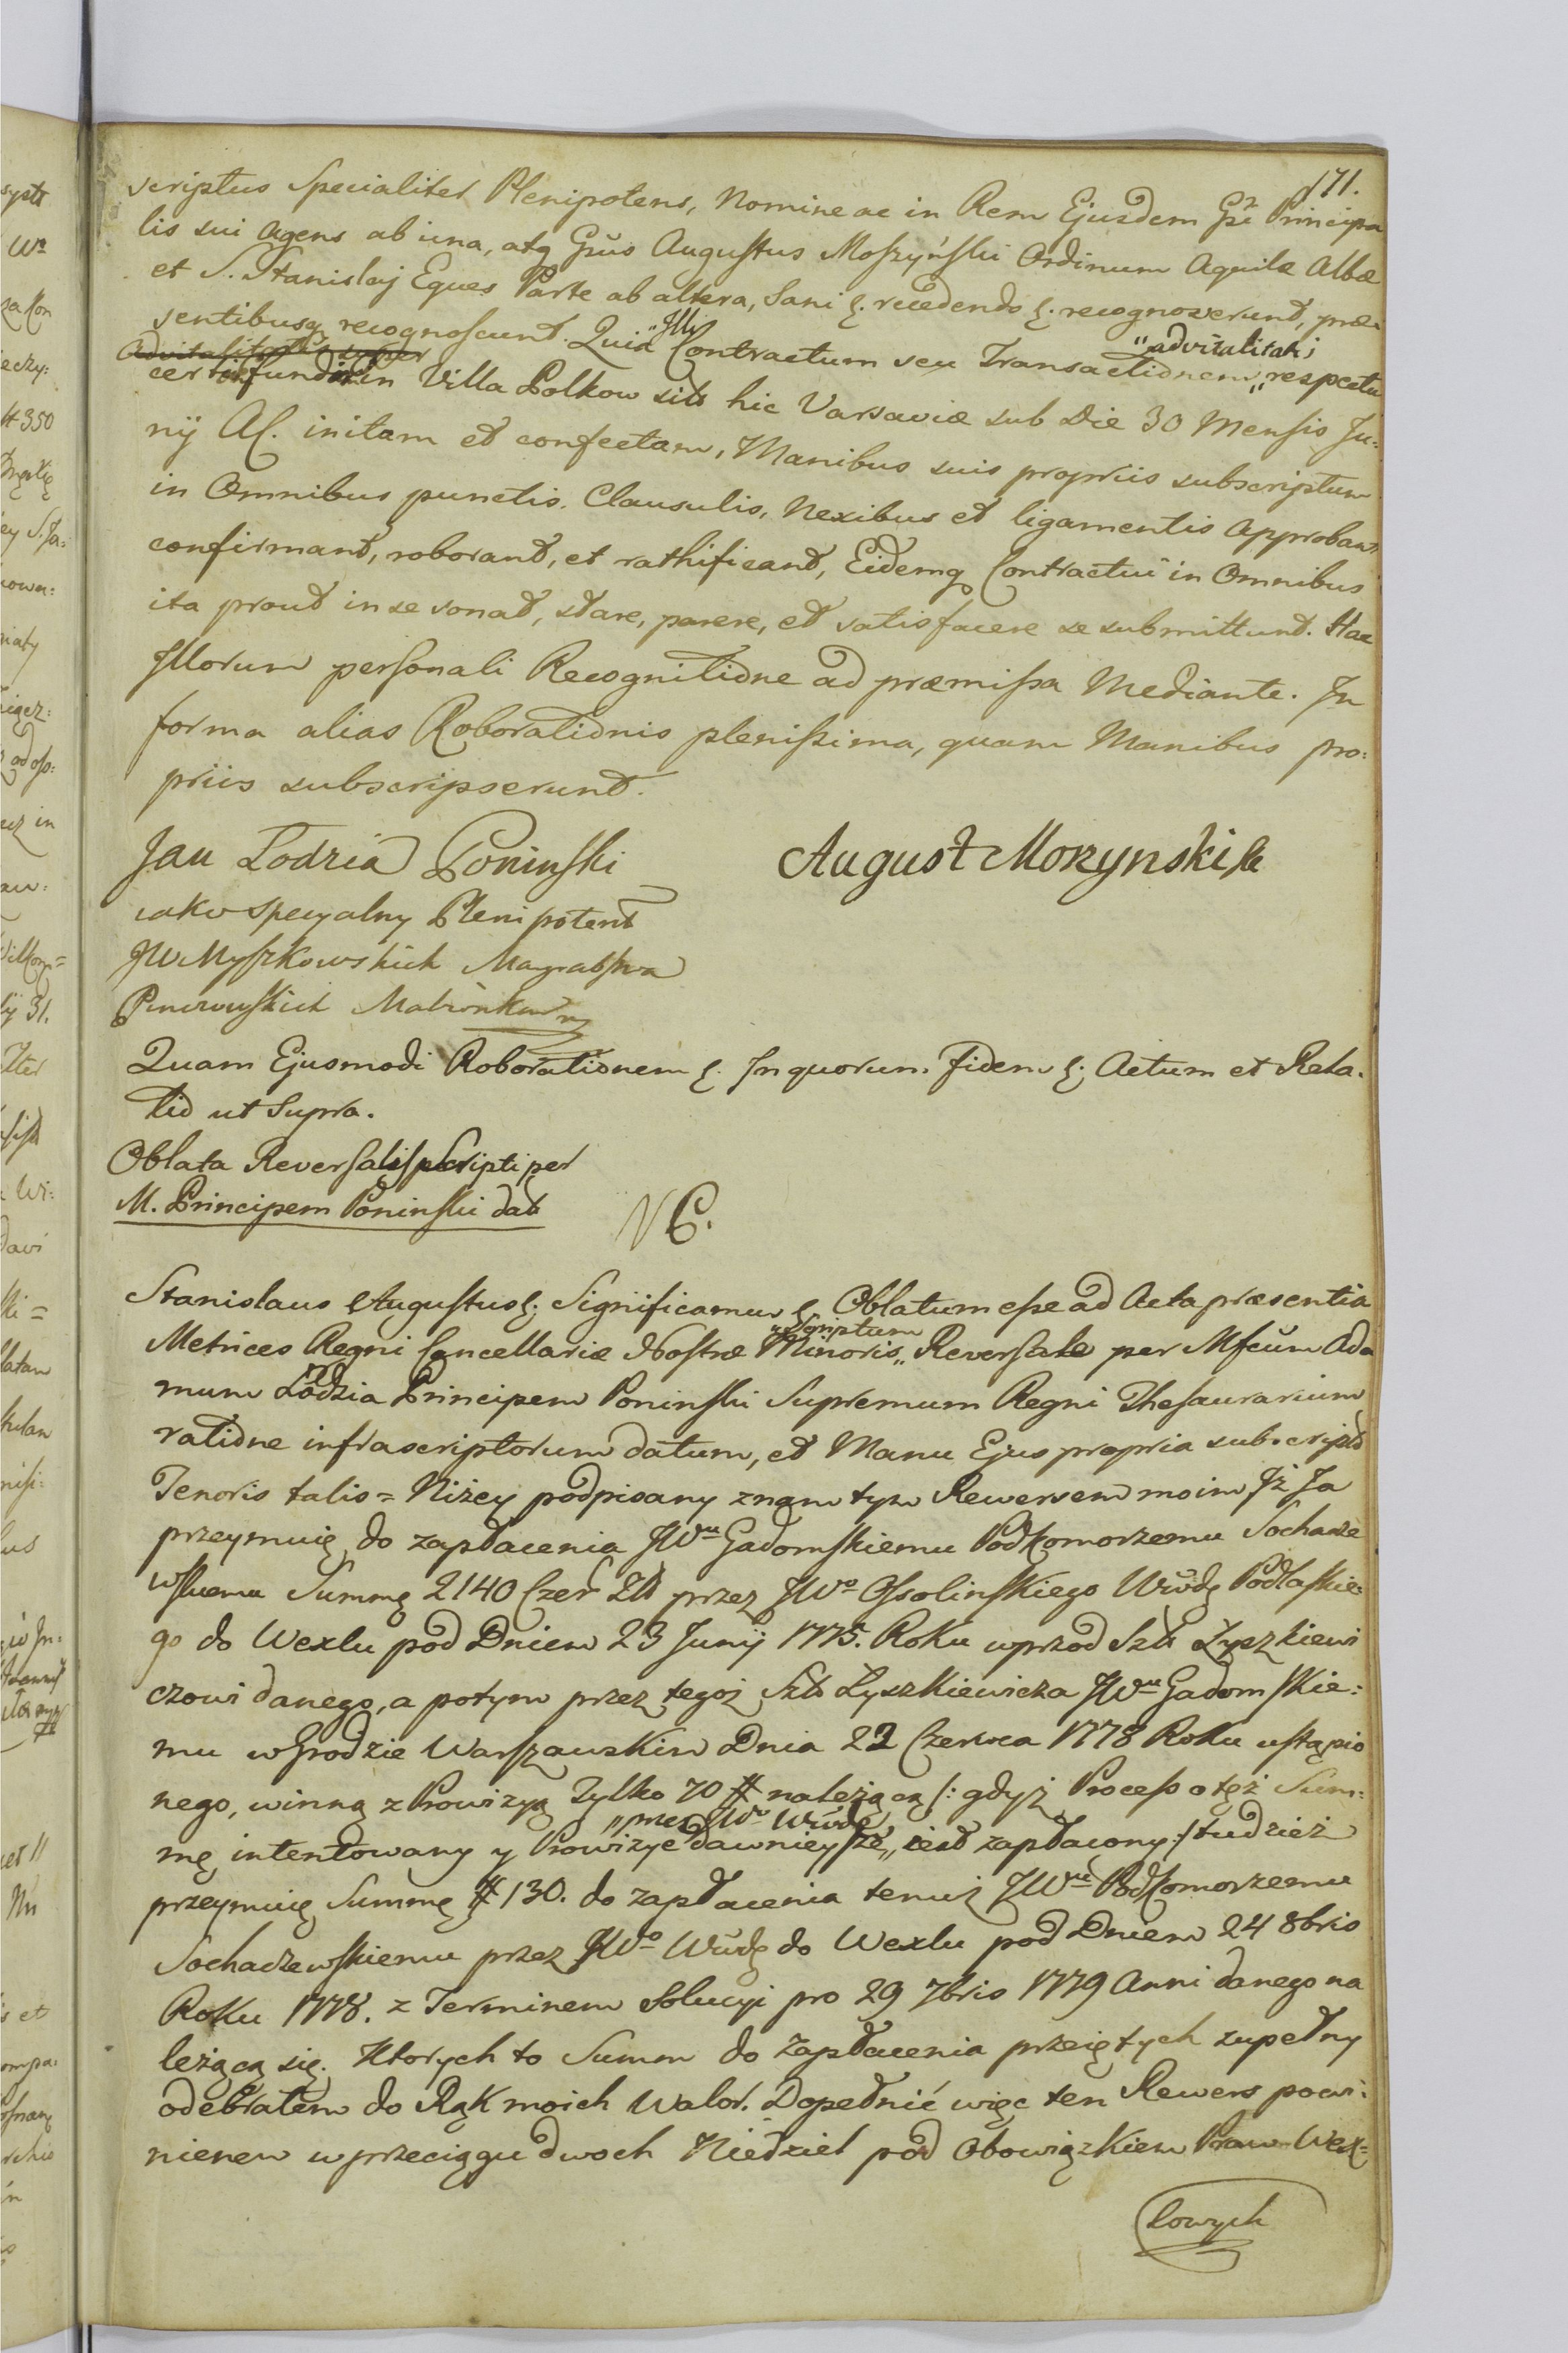 171.
scriptus Specialiter Plenipotens, Nomine ac in Rem Ejusdem Gñi Principa
lis sui Agens ab una, atq Gñus Augustus Moszyński Ordinum Aquilæ Albæ
et S. Stanislaj Eques Parte ab altera, Sani &. recedendo &. recognoverunt, præ-
sentibusq recognoscunt. Quia "Illi Contractum seu Transactionem "advitalitatis" respectu
Advitalitatis super
certi fundi in Villa Polkow siti hic Varsaviæ sub Die 30 Mensis Ju-
nij A(. initam et confectam, Manibus suis propriis subscriptum
in Omnibus punctis, Clausulis, Nexibus et ligamentis Approbant
confirmant, roborant, et rathificant, Eidemq Contractui in Omnibus
ita prout in se sonat, stare, parere, et satisfacere se submittunt. Hac
Illorum personali Recognitione ad præmissa Mediante. In
forma alias Roborationis plenissima, quam Manibus pro:
priis subscripserunt.
Jan Lodzia Poninski
August Moszynski
iako specyalny Plenipotent
JW Myszkowskich Magrabstwa
Pinczowskich Małżonkow
Quam Ejusmodi Roborationem &. In quorum fidem &. Actum et Rela-
tio ut Supra.
Oblata Reversalis Scripti per
M. Principem Poninski dati
Stanislaus Augustus &. Significamus &. Oblatum esse ad Acta præsentia
Metrices Regni Cancellariæ Nostræ Minoris "Scriptum" Reversale per Mfcum Ada
mum Łodzia Principem Poninski Supremum Regni Thesaurarium
ratione infrascriptorum datum, et Manu Ejus propria subscript
Tenoris talis = Niżey podpisany znam tym Rewersem moim Iż Ja
przeymuię do zapłacenia JWu Gadomskiemu Podkomorzemu Sochacze
wskiemu Summę 2140 Czer Złt przez JWo Ossolinskiego Wwdę Podlaskie:
go do Wexlu pod Dniem 23 Junij 1775. Roku wprzod Szł Łyszkiewi
czowi danego, a potym przez tegoż Szł Łyszkiewicza JWu Gadomskie:
mu w Grodzie Warszawskim Dnia 22 Czerwca 1778 Roku ustąpio
nego, winną z Prowizyą Tylko 70 # należącą /: gdyż Process o tęż Sum:
mę intentowany y Prowizye dawnieysze "przez JWo Wwdę" iest zapłacony :/ tudzież
przeymuię Summę # 130. do zapłacenia temuż JWu Podkomorzemu
Sochaczewskiemu przez JWo Wwdę do Wexlu pod Dniem 24 8bris
Roku 1778. z Terminem Solucyi pro 29 7bris 1779 Anni danego na
leżącą się. Ktorych to Summ do zapłacenia przeiętych zupełny
odebrałem do Rąk moich Walor. Dopełnić więc ten Rewers powi:
nienem w przeciągu dwoch Niedziel pod Obowiązkiem Praw Wex-
lowych